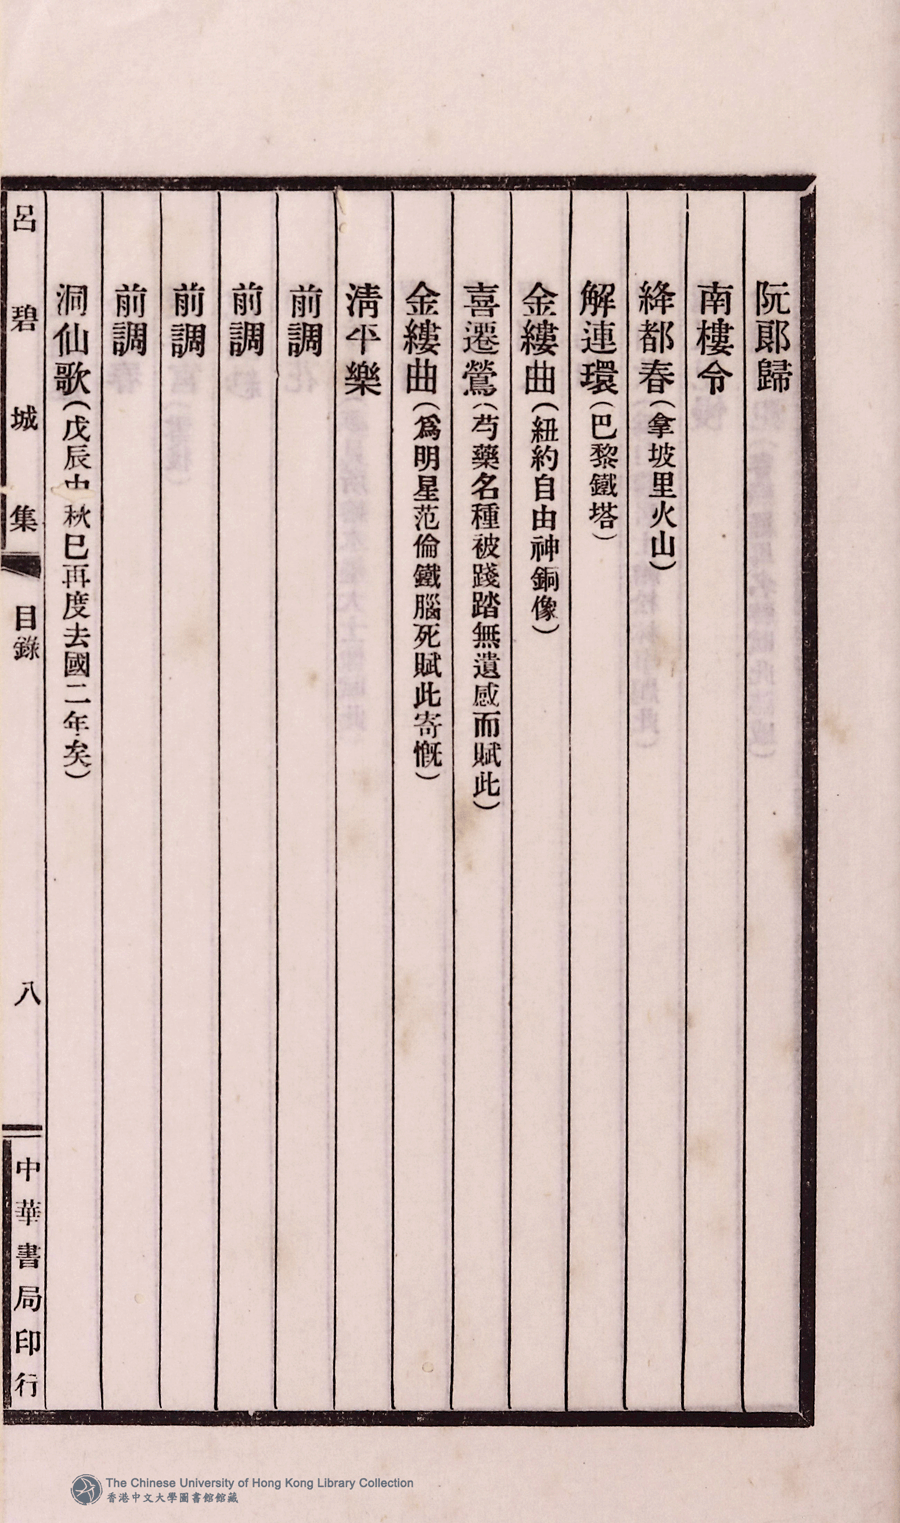 阮郎歸
南樓令
絳都春（拿坡里火山）
解連環（巴黎鐵塔）
金縷曲（紐約自由神銅像）
喜遷鶯（芍藥名種被踐踏無遺感而賦此）
金縷曲（爲明星范倫鐵腦死賦此寄慨）
淸平樂
前調
前調
前調
前調
洞仙歌（戊辰中秋巳再度去國二年矣）
呂碧城集 目錄 八 中華書局印行
The Chinese University of Hong Kong Library Collection
香港中文大學圖書館館藏